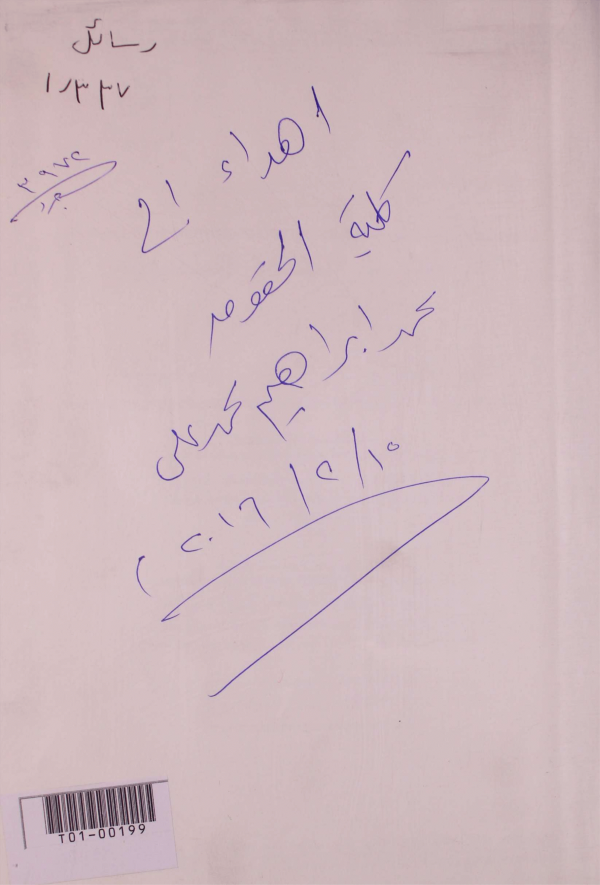 رسائل
١٫٣٣٧
٢٩٧٤
جرد
اهداء إلى
كلية الحقوق
محمد ابراهيم محمد على
١٥/٢/٢٠١٦م
T01-00199